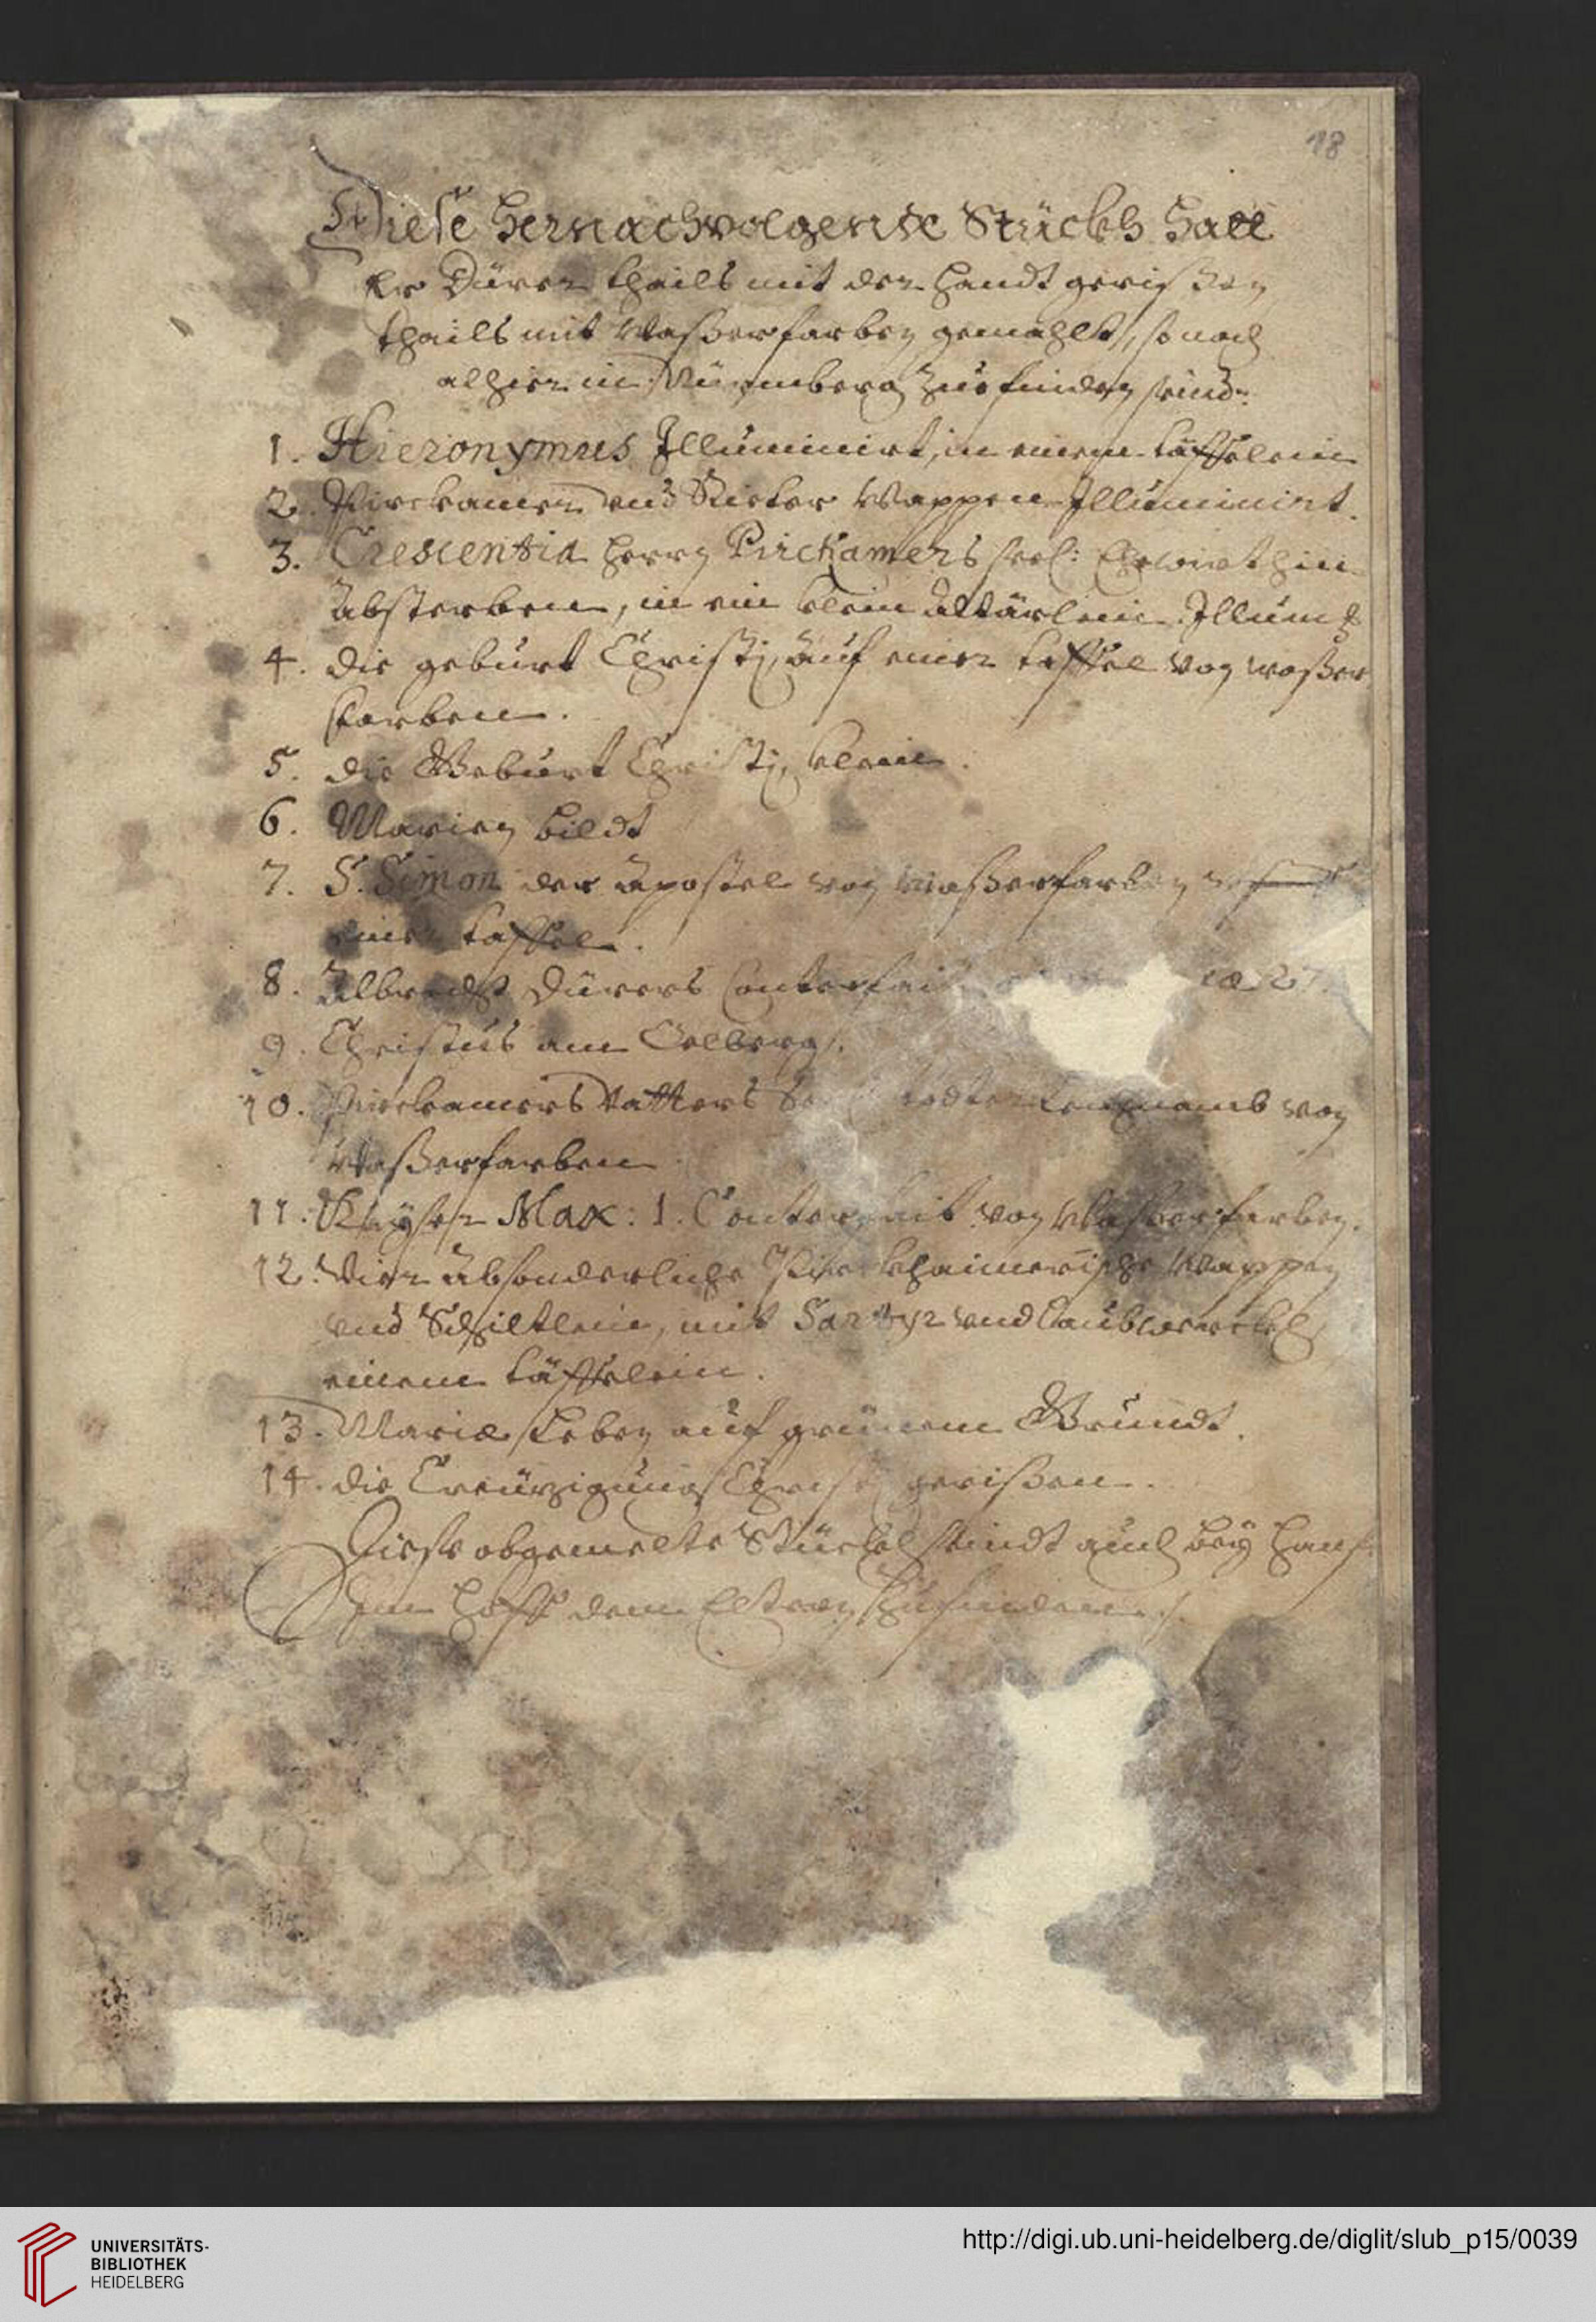 18
Diese hernachvolgende Stückh hatt
Er Dürer theils mit der Handt gerissen
theils mit Wasserfarben gemahlt, so noch
alhier in Nürmberg zue finden seind.
1. Hieronymus Illuminirt, in einem täffelein
2. Pirckamer vnd Rieter Wappen Illuminirt.
3. Crescentia Herrn Pirckamers seel: Ehewirthin
Absterben, in ein klein Altärlein Illum
4. die geburt Christj, auf einer taffel von wasser
farben.
5. die Geburt Christj, klein.
6. Marien bildt
7. S. Simon der Apostel von Wasserfarben
einer taffel.
8. Albrecht Dürers Conterfait
9. Christus am Oelberg.
10. Pirckamers Vatters todter Leichnamb von
Wasserfarben
11. Kayser Max: 1. Conterfait von Wasserfarben.
12. Vier absonderliche Pirckhaimerische Wappen
vnd Schiltlein, mit Satyr vnd Laubwerckh
einem täffelein.
13. Mariæ Leben auf grünem Grundt.
14. die Creüzigung Christj gerissen.
Diese obgemelte Stückh seindt auch bey Hans
Im Hoff dem Eltern zufinden.
UNIVERSITÄTS-
BIBLIOTHEK
HEIDELBERG
http://digi.ub.uni-heidelberg.de/diglit/slub_p15/0039